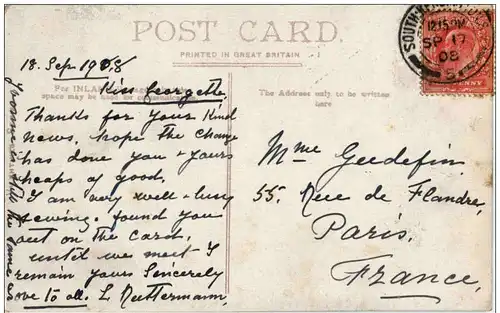 POST CARD.
PRINTED IN GREAT BRITAIN
18. Sep. 1908
Kiss Georgette
Thanks for your Kind
news, hope the change
has done you & yours
heaps of good.
I am very well & busy
sewing. found you
out on the card.
until we meet I
remain yours Sincerely
love to all. L
FOR INLAND
space may be used
The Address only to be written
here
Mme
55. Rue de Flandre,
Paris.
France.
SOUTH
12.15 PM
SP 17
08
S.E.
PENNY